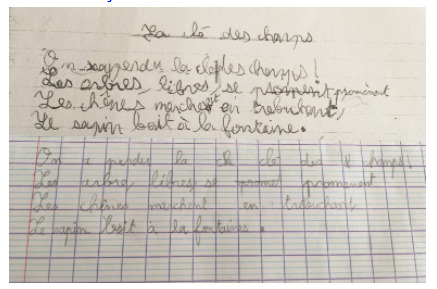 La clé des champs
On a perdu la clé des champs !
Les arbres, libres, se promènent
Les chênes marchent en trebuchant,
Le sapin boit à la fontaine.
On a perdu la ch clé des champs !
Les arbres, libres, se promènent
Les chênes marchent en trébuchant,
Le sapin boit à la fontaines.